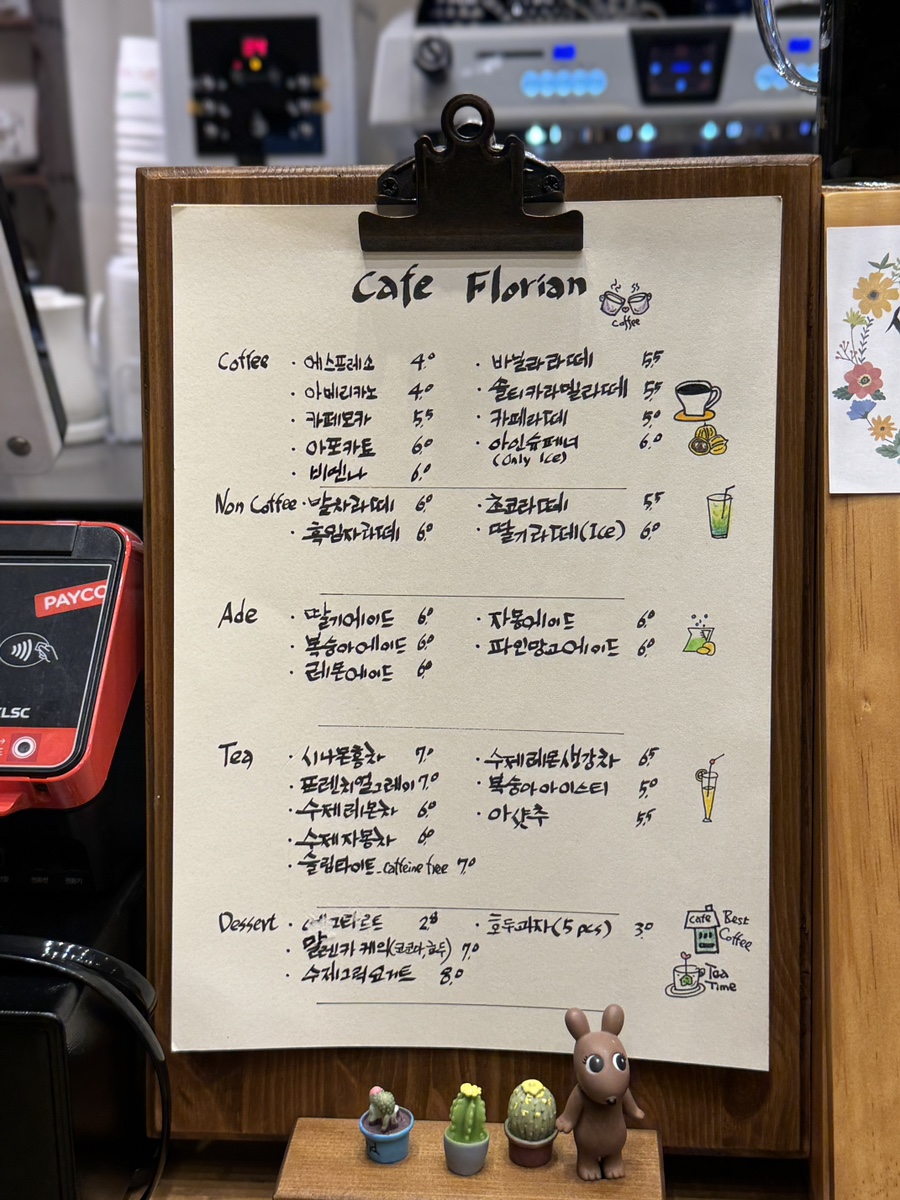 Cafe Florian
coffee
Coffee · 에스프레소 4.0 · 바닐라라떼 5.5
· 아메리카노 4.0 · 솔티카라멜라떼 5.5
· 카페모카 5.5 · 카페라떼 5.0
· 아포카토 6.0 · 아인슈페너 6.0
(Only Ice)
· 비엔나 6.0
Non Coffee · 말차라떼 6.0 · 초코라떼 5.5
· 흑임자라떼 6.0 · 딸기라떼(Ice) 6.0
Ade · 딸기에이드 6.0 · 자몽에이드 6.0
· 복숭아에이드 6.0 · 파인망고에이드 6.0
· 레몬에이드 6.0
Tea · 시나몬홍차 7.0 · 수제레몬생강차 6.5
· 프렌치얼그레이 7.0 · 복숭아아이스티 5.0
· 수제레몬차 6.0 · 아샷추 5.5
· 수제자몽차 6.0
· 슬립타이트_caffeine free 7.0
Dessert · 에그타르트 2.8 · 호두과자(5 pcs) 3.0
· 말렌카 케익(코코아,호두) 7.0
· 수제그릭요거트 8.0
cafe Best
Coffee
Tea
Time
PAYCO